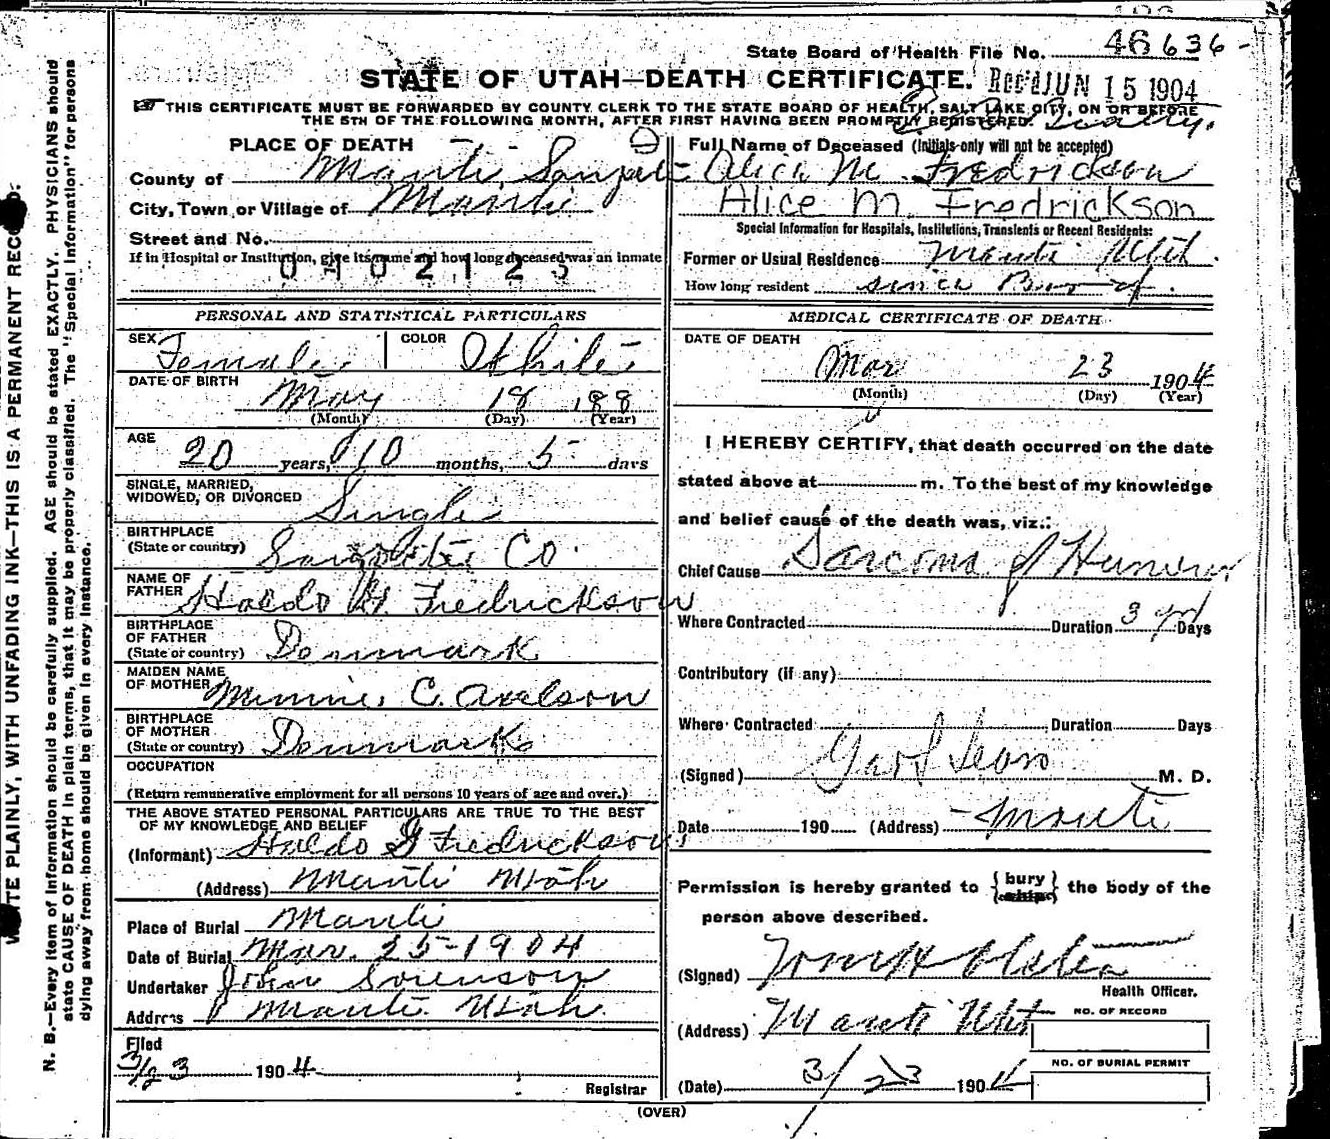 State Board of Health File No. 46636-
STATE OF UTAH—DEATH CERTIFICATE. Rec'd JUN 15 1904
THIS CERTIFICATE MUST BE FORWARDED BY COUNTY CLERK TO THE STATE BOARD OF HEALTH, SALT LAKE CITY, ON OR BEFORE
THE 5TH OF THE FOLLOWING MONTH, AFTER FIRST HAVING BEEN PROMPTLY REGISTERED.
PLACE OF DEATH
County of Manti, Sanpete
City, Town or Village of Manti
Street and No.
If in Hospital or Institution, give its name and how long deceased was an inmate
0402123
Full Name of Deceased (Initials only will not be accepted)
Alice M. Fredrickson
Alice M. Fredrickson
Special Information for Hospitals, Institutions, Transients or Recent Residents:
Former or Usual Residence Manti Utah.
How long resident since
PERSONAL AND STATISTICAL PARTICULARS
SEX Female COLOR White
DATE OF BIRTH
May 18 188
(Month) (Day) (Year)
AGE
20 years, 10 months, 5 days
SINGLE, MARRIED,
WIDOWED, OR DIVORCED Single
BIRTHPLACE
(State or country) Sanpete Co.
NAME OF
FATHER Haldo Fredrickson
BIRTHPLACE
OF FATHER
(State or country) Denmark
MAIDEN NAME
OF MOTHER Minnie C. Axelson
BIRTHPLACE
OF MOTHER
(State or country) Denmark
OCCUPATION
(Return remunerative employment for all persons 10 years of age and over.)
THE ABOVE STATED PERSONAL PARTICULARS ARE TRUE TO THE BEST
OF MY KNOWLEDGE AND BELIEF
(Informant) Haldo Fredrickson
(Address) Manti Utah
Place of Burial Manti
Date of Burial Mar. 25-1904
Undertaker John Sorenson
Address Manti Utah.
Filed
3/23 1904
Registrar
MEDICAL CERTIFICATE OF DEATH
DATE OF DEATH
Mar 23 1904
(Month) (Day) (Year)
I HEREBY CERTIFY, that death occurred on the date
stated above at m. To the best of my knowledge
and belief cause of the death was, viz.:
Chief Cause Sarcoma of Humerus
Where Contracted Duration 3 yrs Days
Contributory (if any)
Where Contracted Duration Days
(Signed) M. D.
Date 190 (Address) Manti
Permission is hereby granted to {bury} the body of the
person above described.
(Signed)
Health Officer.
(Address) Manti Utah
NO. OF RECORD
NO. OF BURIAL PERMIT
(Date) 3/23 1904
(OVER)
WRITE PLAINLY, WITH UNFADING INK—THIS IS A PERMANENT RECORD.
N. B.—Every item of information should be carefully supplied. AGE should be stated EXACTLY. PHYSICIANS should
state CAUSE OF DEATH in plain terms, that it may be properly classified. The "Special Information" for persons
dying away from home should be given in every instance.